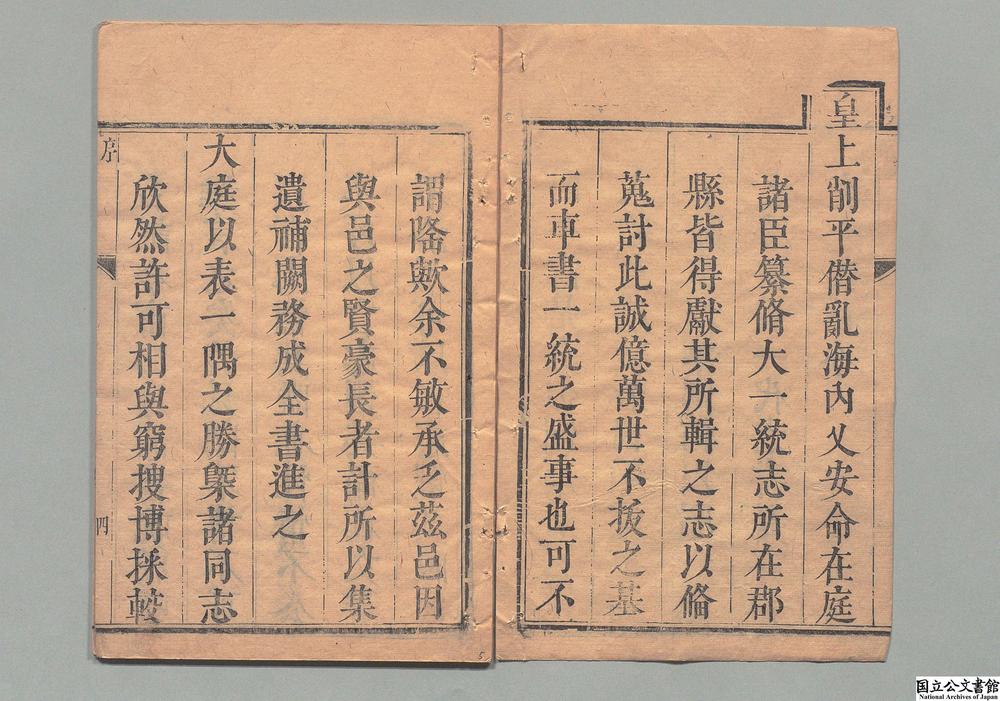 皇上削平僭亂海內乂安命在庭
諸臣纂脩大一統志所在郡
縣皆得獻其所輯之志以俻
蒐討此誠億萬世不拔之基
而車書一統之盛事也可不
謂隆歟余不敏承乏茲邑因
與邑之賢豪長者計所以集
遺補闕務成全書進之
大庭以表一隅之勝槩諸同志
欣然許可相與窮搜博採較
序
四
5
国立公文書館
National Archives of Japan